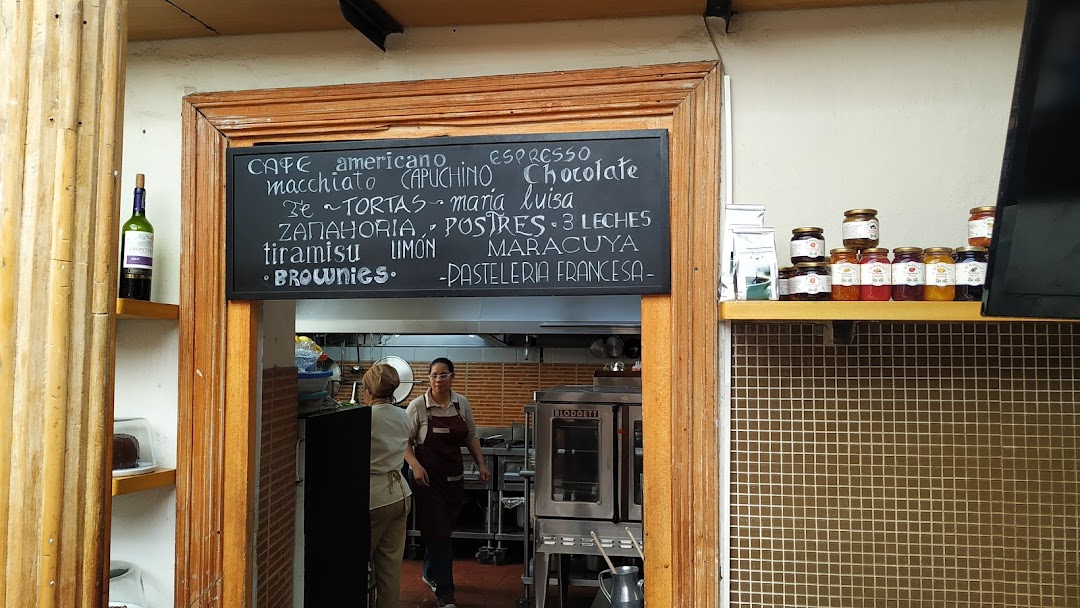 CAFE americano ESPRESSO
macchiato CAPUCHINO Chocolate
Te ~ TORTAS ~ maria luisa
ZANAHORIA · POSTRES · 3 LECHES
tiramisu LIMÓN MARACUYA
· BROWNIES · - PASTELERIA FRANCESA -
BLODGETT